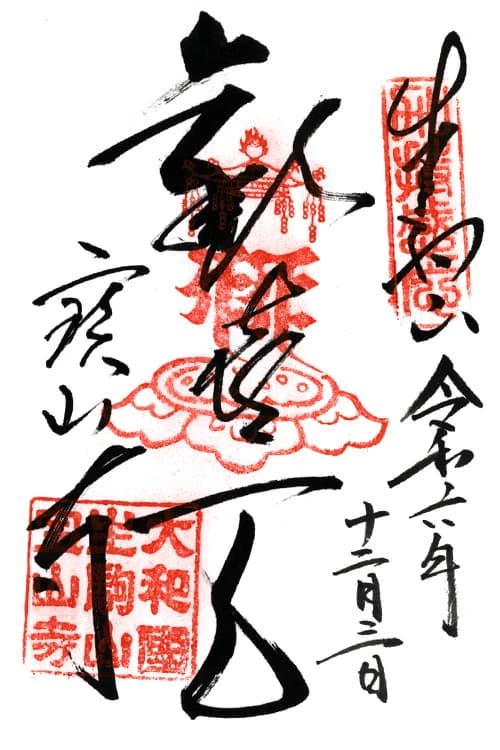 生駒山
令和六年
十二月三日
歓喜天
寳山寺
大和國
生駒山
宝山寺